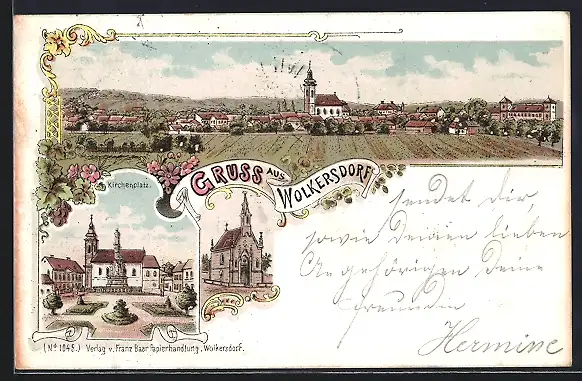 GRUSS AUS
WOLKERSDORF
Kirchenplatz.
sendet Dir,
sowie Deinen lieben
Angehörigen Deine
Freundin
Hermine
(No 1045.) Verlag v. Franz Baar Papierhandlung, Wolkersdorf.